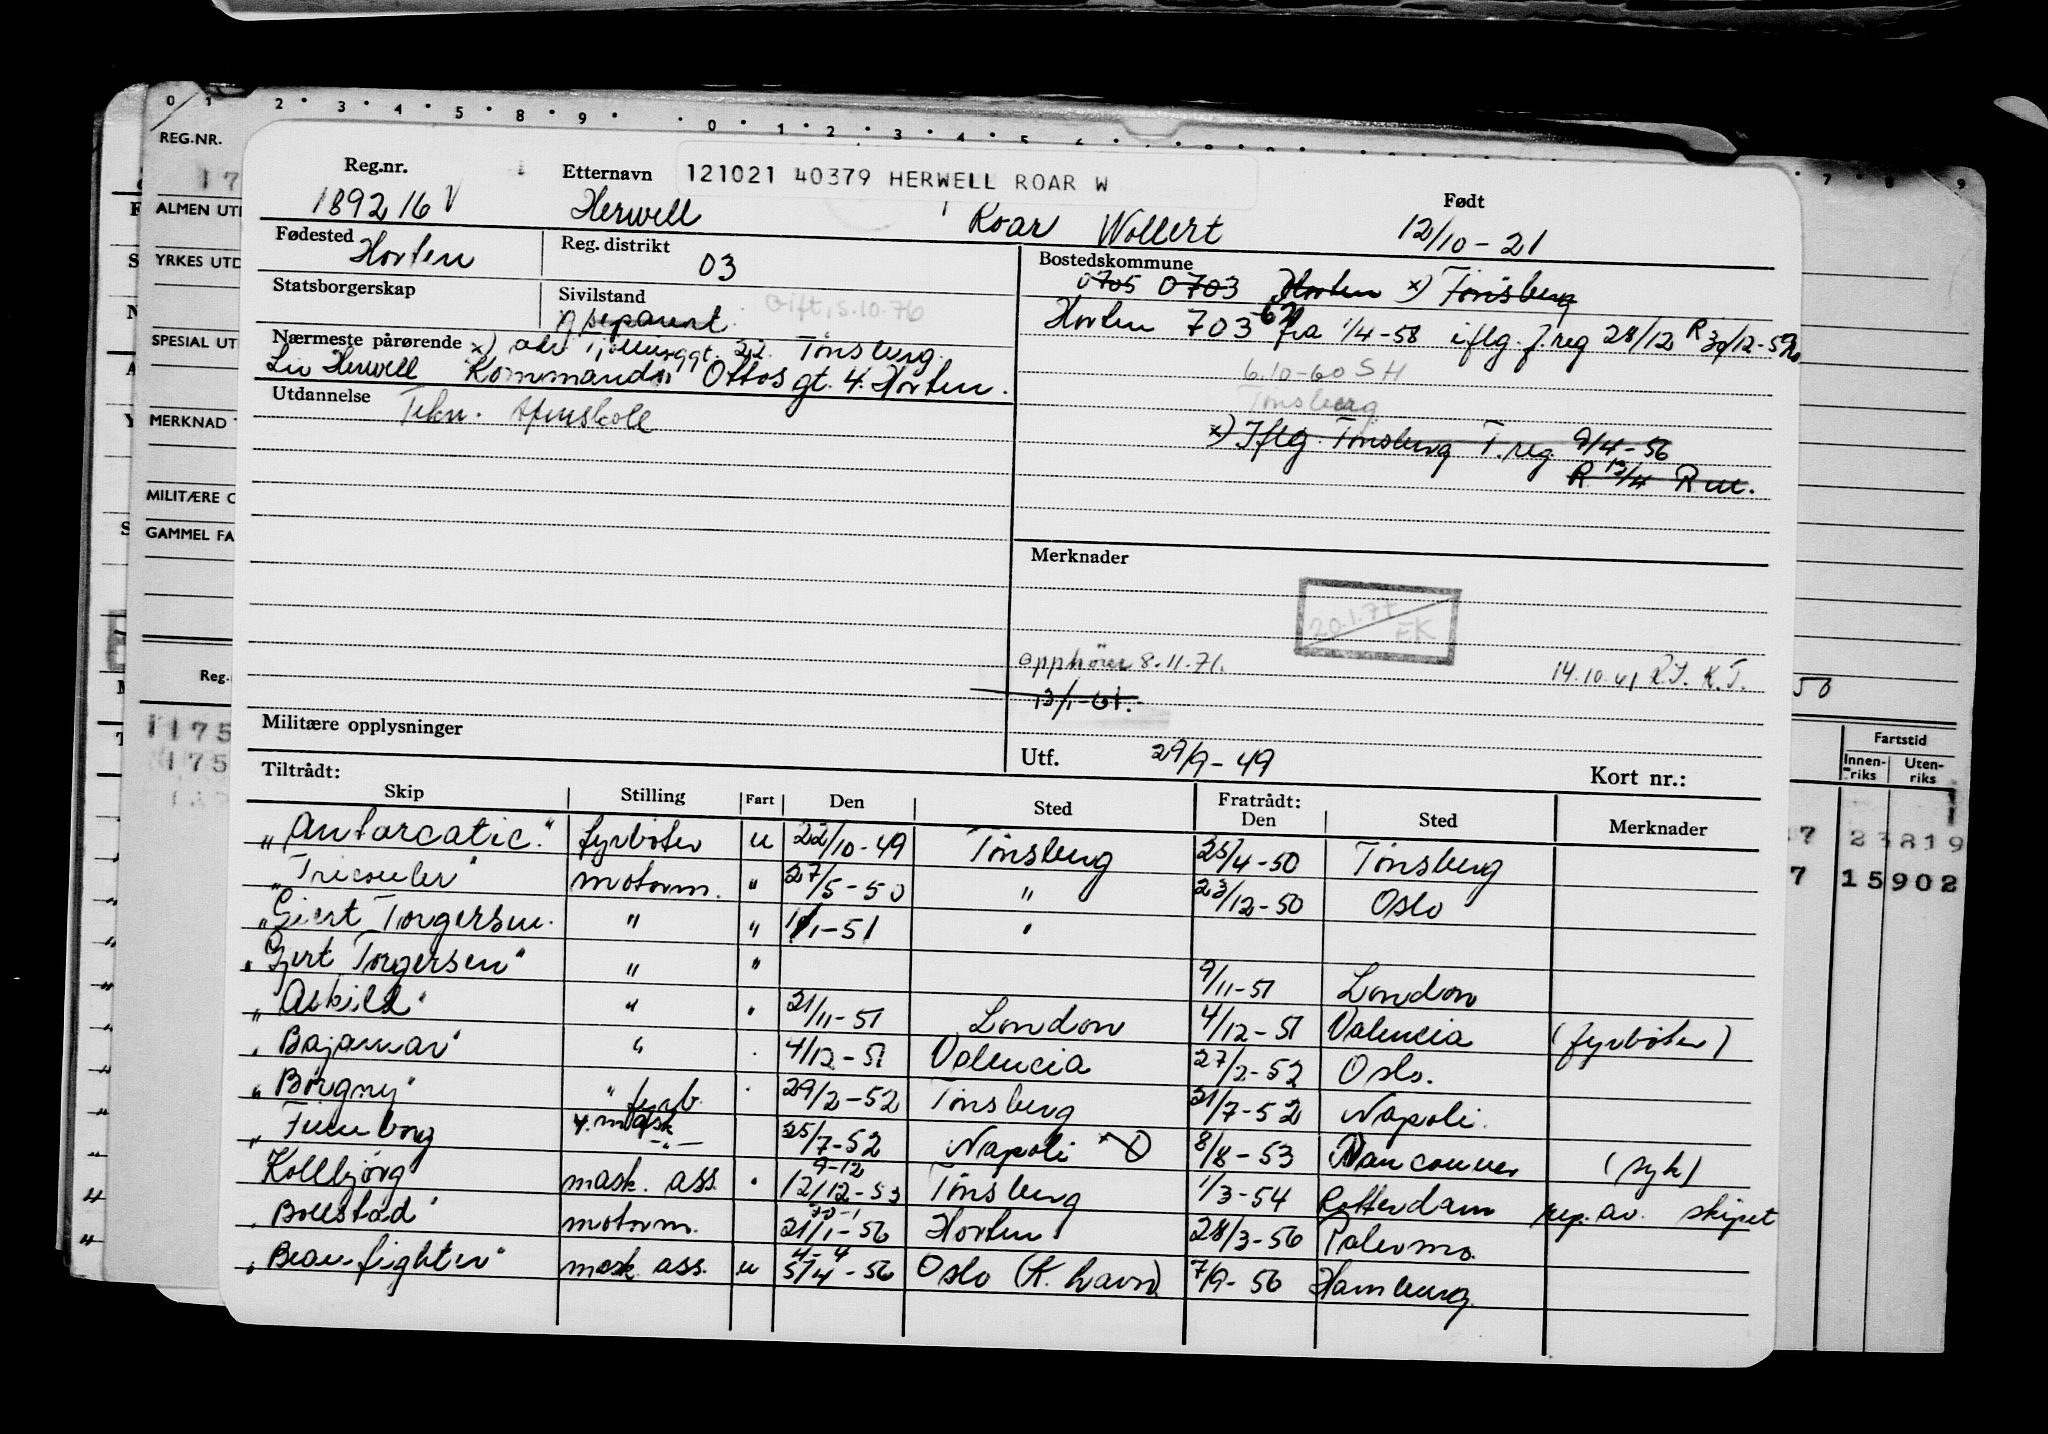 0 1 2 3 4 5 8 9 0 1 2 3 4 5 7 8 9
REG.NR.
ALMEN UT
YRKES UTD
SPESIAL UT
MERKNAD
MILITÆRE O
GAMMEL FA
Reg.nr. Etternavn 121021 40379 HERWELL ROAR W Født
189216 V Herwell Roar Wollert 12/10-21
Fødested Horten
Reg. distrikt 03
Bostedskommune
0705 0703 Horten x) Tönsberg
Statsborgerskap
Sivilstand separert Gift, 5.10.76
Horten 703 fra 1/4-58 iflg. f.reg 28/12
Nærmeste pårørende x) 22. Tönsberg.
Liv Herwell Kommandör Ottos gt. 4. Horten.
6.10-60 SH
Tönsberg
Utdannelse Tekn. Aftenskole
x) Iflg. Tönsberg F.reg. 9/4-56
R 12/4
Merknader
20.1.77 EK
opphörer 8.11.71.
14.10.41 K.J.
13/1-61.
Militære opplysninger
Utf. 29/9-49
Kort nr.:
50
1175
175
Fartstid
Innen-riks Uten-riks
7 23819
7 15902
Tiltrådt:
Fratrådt:
Skip Stilling Fart Den Sted Den Sted Merknader
"Antarcatic." fyrböter u 22/10-49 Tönsberg 25/4-50 Tönsberg
"Tricouler" motorm. " 27/5-50 " 23/12-50 Oslo
"Giert Torgersen. " " 1/1-51 "
"Gjert Torgersen" " " 9/11-51 London
"Askild" " " 21/11-51 London 4/12-51 Valencia (fyrböter)
"Bajamar" " " 4/12-51 Valencia 27/2-52 Oslo.
"Borgny" " fyrb. " 29/2-52 Tönsberg 21/7-52 Napoli.
" 4. mask 25/7-52 Napoli x 8/8-53 Vancouver (syk)
Kollbjörg mask. ass. " 9-12 12/12-53 Tönsberg 1/3-54 Rotterdam rep. av. skipet
"Bollstad" motorm. 20-1 21/1-56 Horten 28/3-56 Palermo.
"Beau-fighter" mask. ass. u 4-4 5/4-56 Oslo (K. havn) 7/9-56 Hamburg.